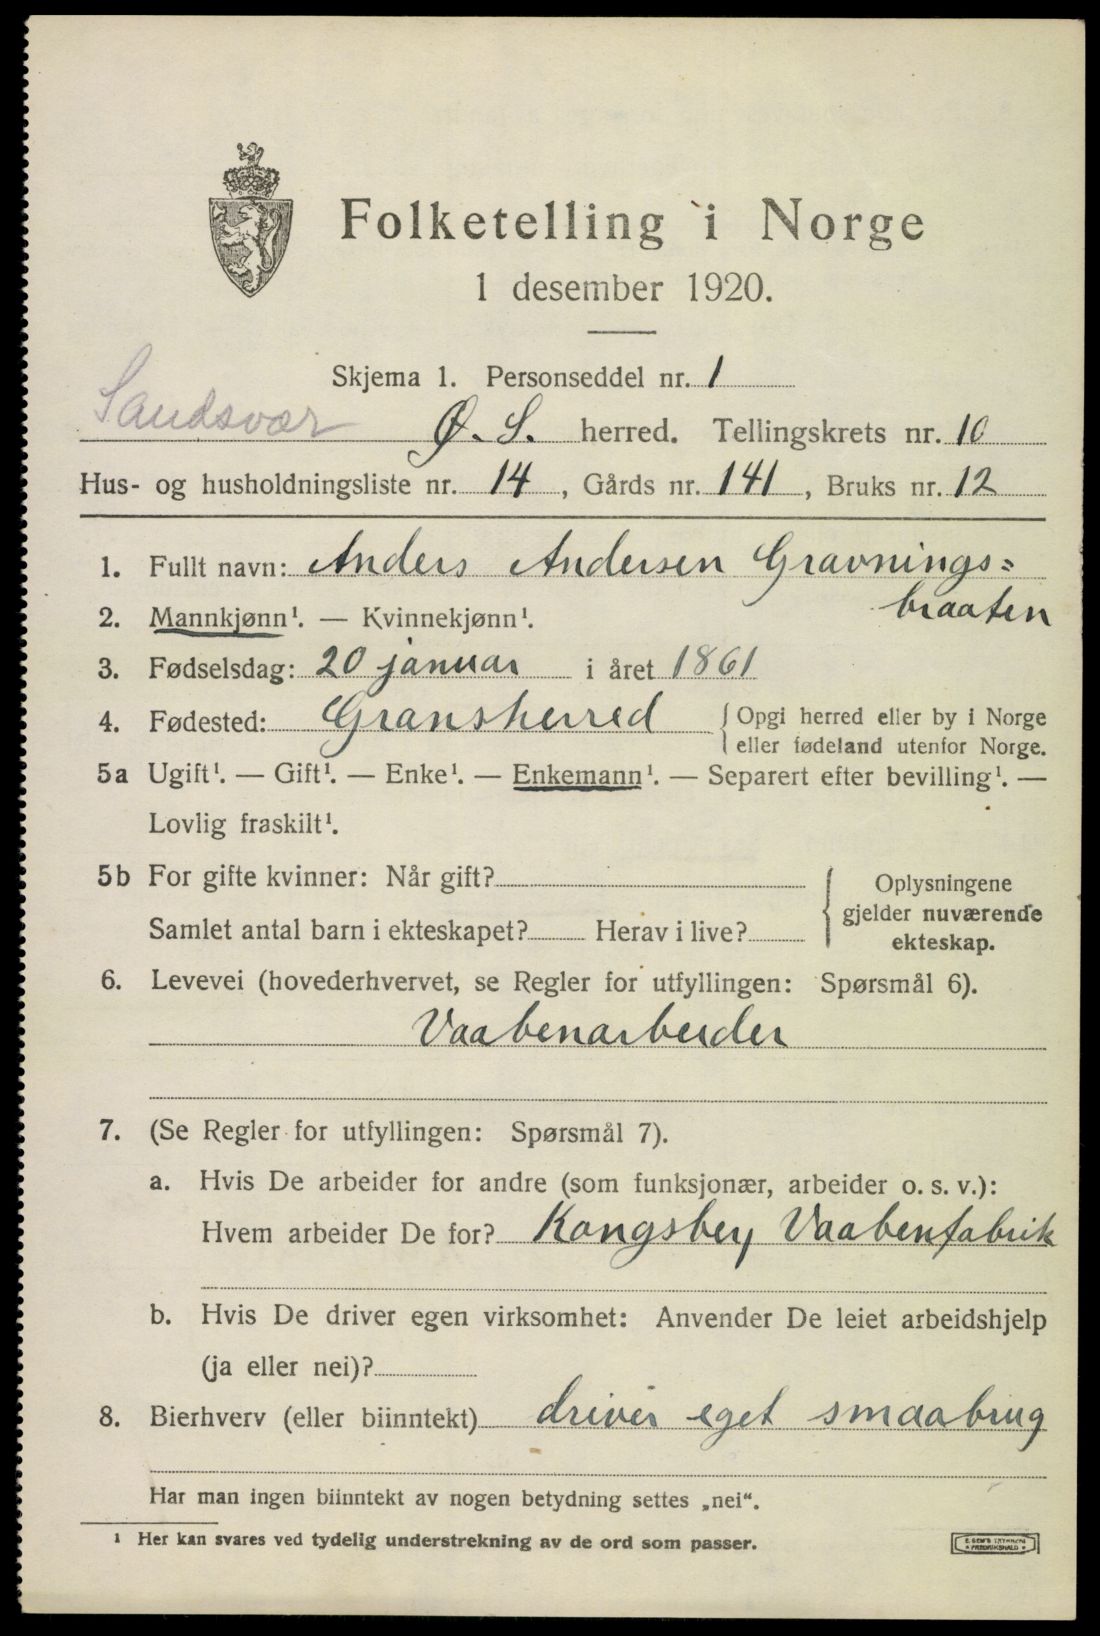 Folketelling i Norge
1 desember 1920.
Skjema 1. Personseddel nr. 1
Sandsvær Ø. S. herred. Tellingskrets nr. 10
Hus- og husholdningsliste nr. 14, Gårds nr. 141, Bruks nr. 12
1. Fullt navn: Anders Andersen Gravnings=
braaten
2. Mannkjønn¹. — Kvinnekjønn¹.
3. Fødselsdag: 20 januar i året 1861
4. Fødested: Gransherred { Opgi herred eller by i Norge
eller fødeland utenfor Norge.
5a Ugift¹. — Gift¹. — Enke¹. — Enkemann¹. — Separert efter bevilling¹. —
Lovlig fraskilt¹.
5b For gifte kvinner: Når gift?
Samlet antal barn i ekteskapet? Herav i live?
{ Oplysningene
gjelder nuværende
ekteskap.
6. Levevei (hovederhvervet, se Regler for utfyllingen: Spørsmål 6).
Vaabenarbeider
7. (Se Regler for utfyllingen: Spørsmål 7).
a. Hvis De arbeider for andre (som funksjonær, arbeider o. s. v.):
Hvem arbeider De for? Kongsberg Vaabenfabrik
b. Hvis De driver egen virksomhet: Anvender De leiet arbeidshjelp
(ja eller nei)?
8. Bierhverv (eller biinntekt) driver eget smaabrug
Har man ingen biinntekt av nogen betydning settes „nei“.
¹ Her kan svares ved tydelig understrekning av de ord som passer.